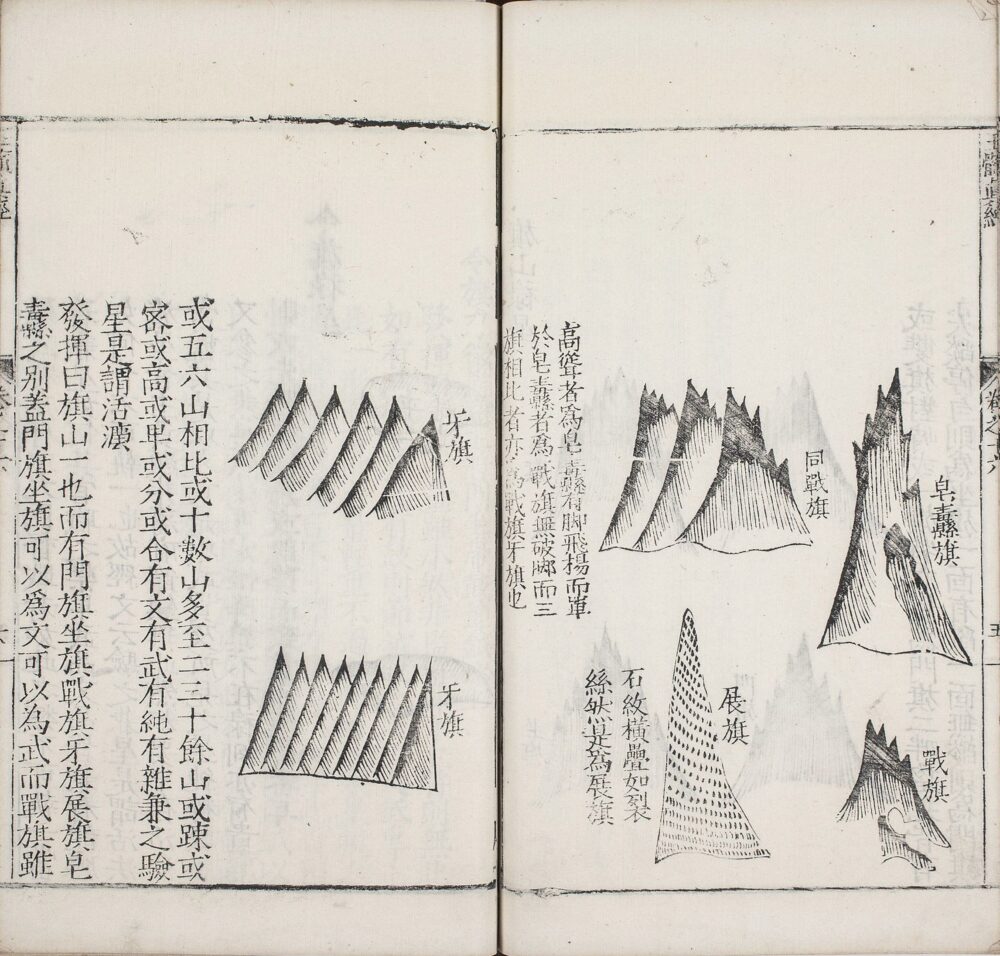 皂纛旗
戰旗
同戰旗
展旗
石紋橫疊如裂
絲然是為展旗
高聳者為皂纛有脚飛揚而單
於皂纛者為戰旗無破脚而三
旗相比者亦為戰旗牙旗也
牙旗
牙旗
或五六山相比或十數山多至二三十餘山或踈或
密或高或卑或分或合有文有武有純有雜兼之驗
星是謂活潑
發揮曰旗山一也而有門旗坐旗戰旗牙旗展旗皂
纛之别蓋門旗坐旗可以為文可以為武而戰旗雖